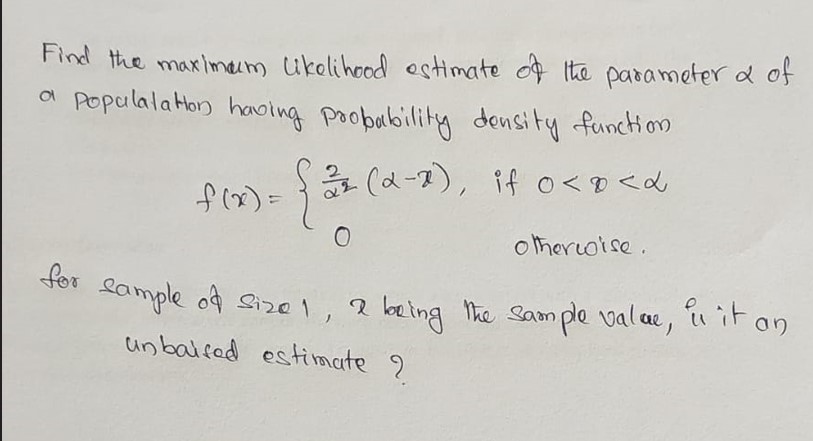 Find the maximum likelihood estimate of the parameter α of
a populalation having probability density function
f(x) = { 2/α² (α-x), if 0<x<α
0 otherwise.
for sample of size 1, x being the sample value, is it an
unbaised estimate ?